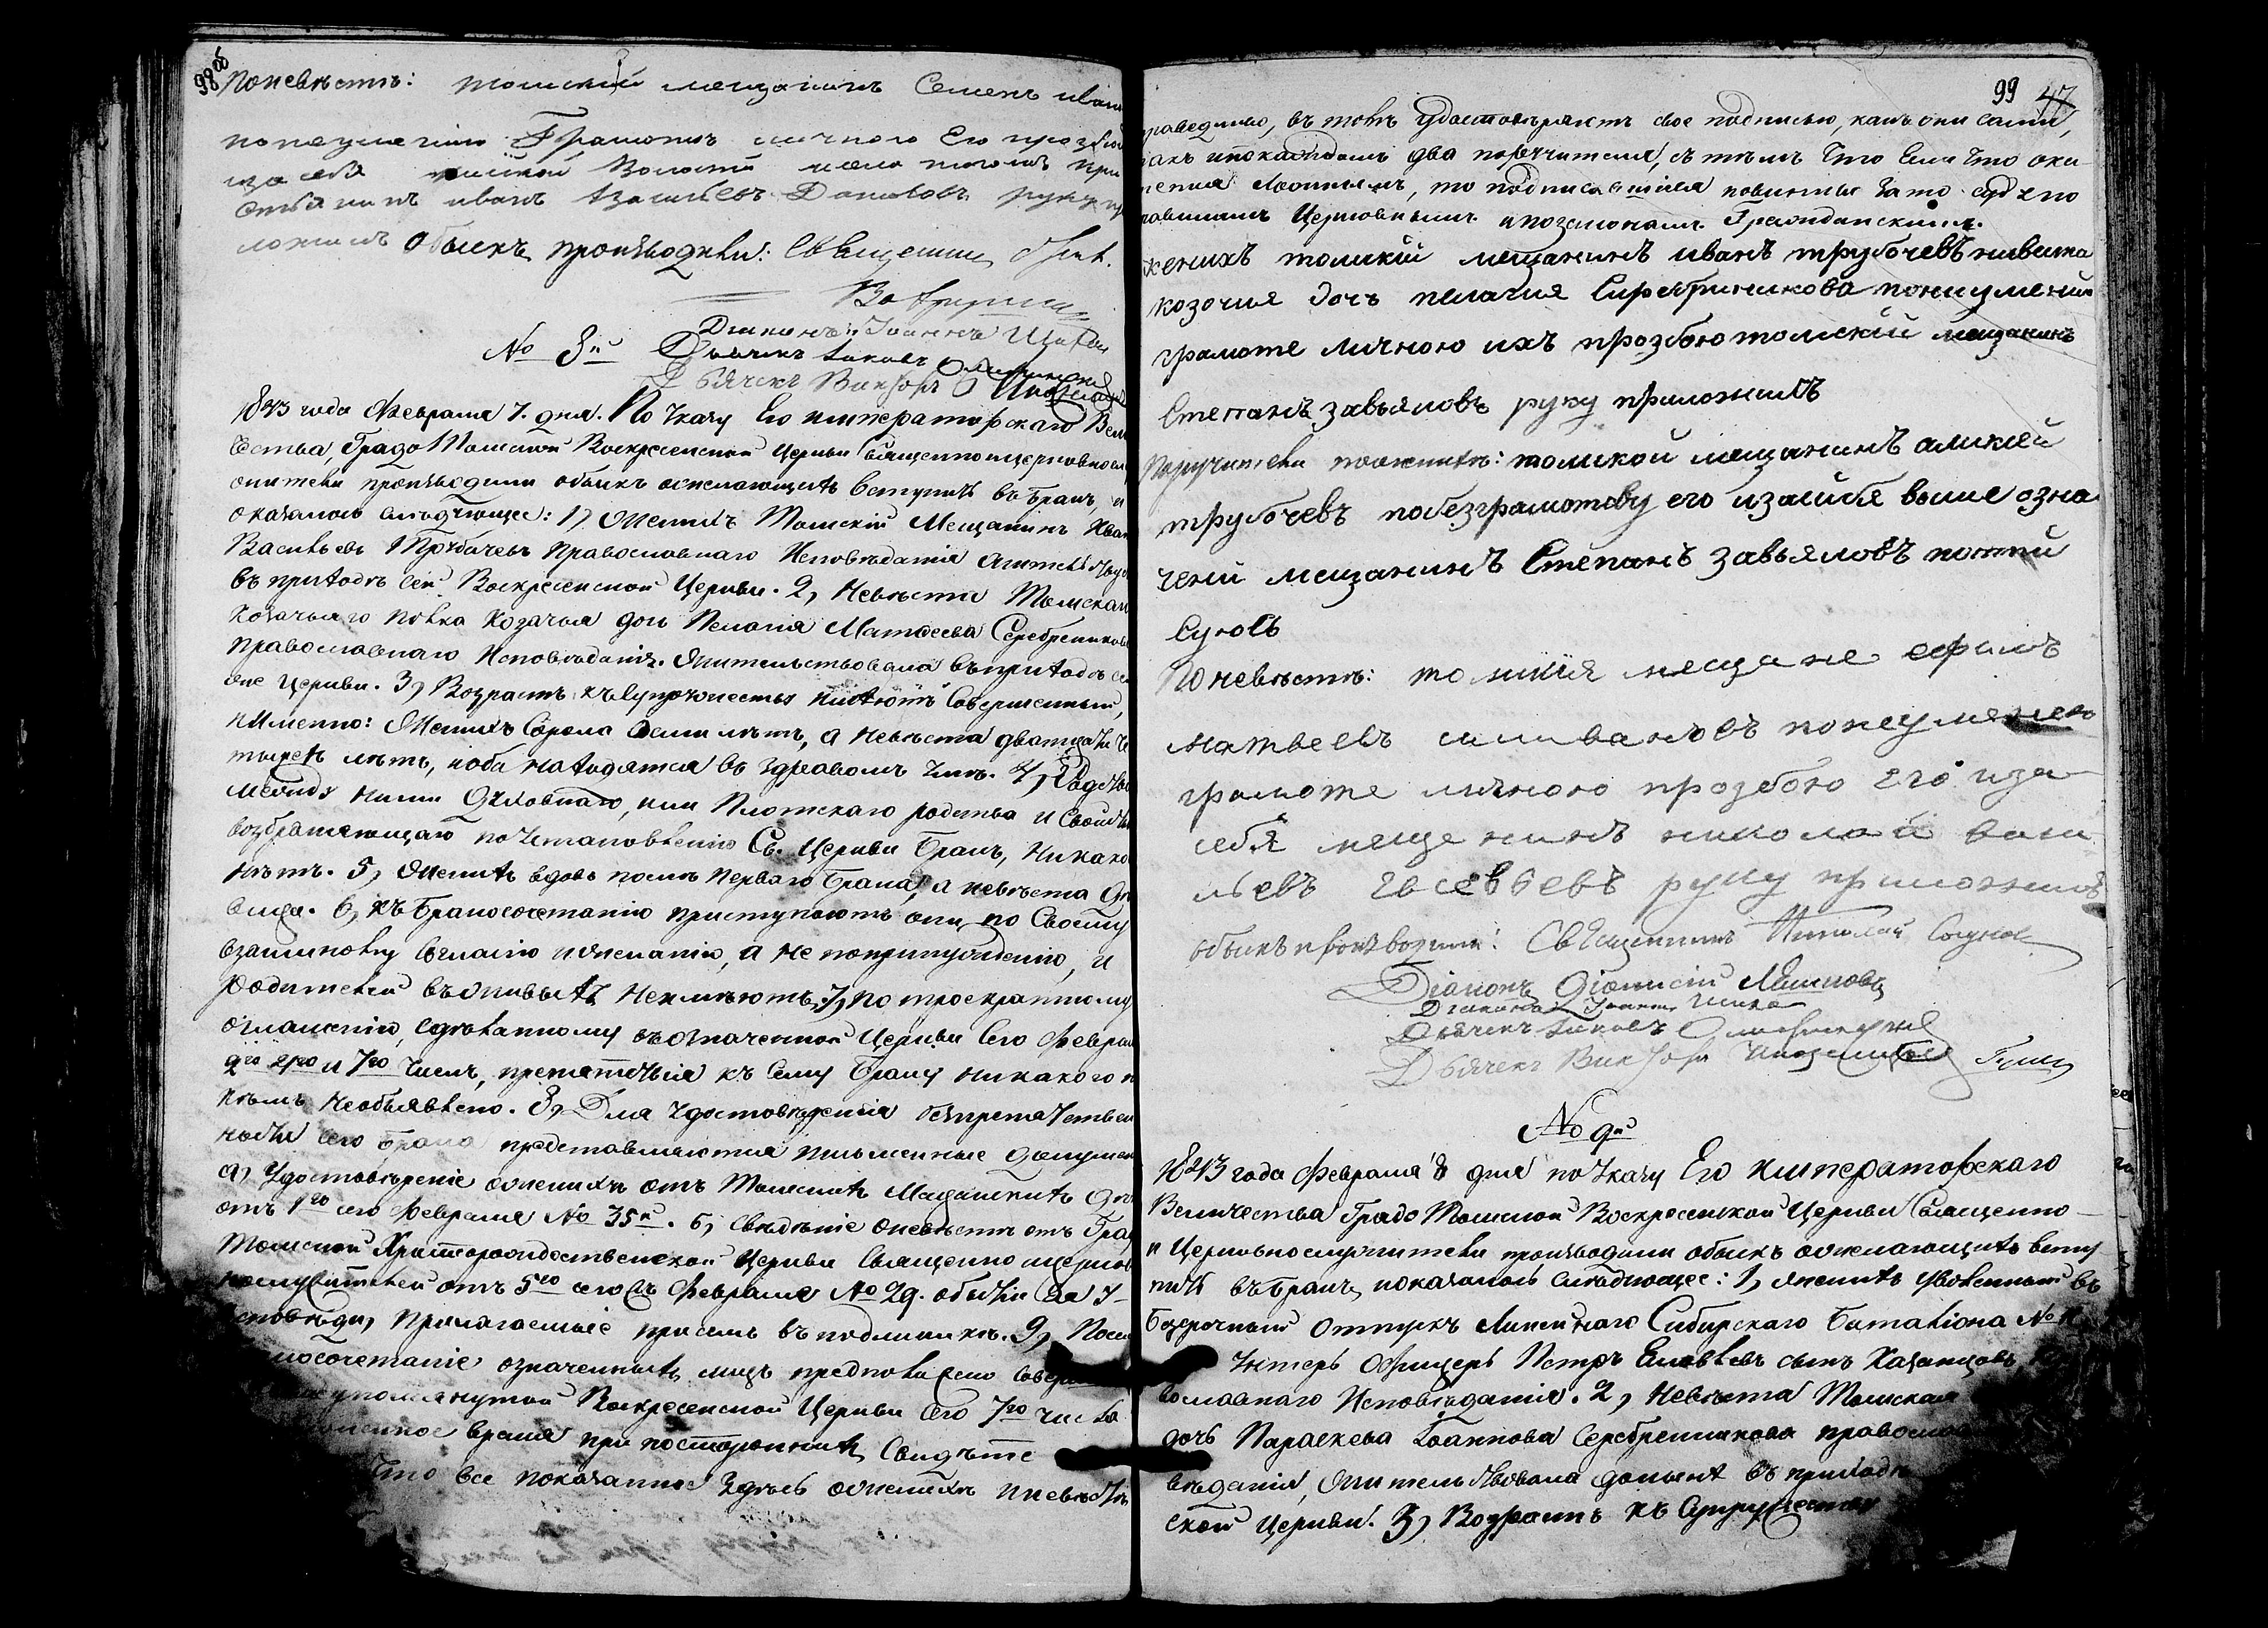 98 об
По невѣстѣ: томский мещанинъ Семенъ иван
по неумению Грамотъ личною Его прозбою
за себя волости села при

ложилъ Обыскъ производили: Священникъ

Диаконъ Иоаннъ
№ 8й Дьячекъ Иаковъ
Дьячекъ Викторъ
1843 года Февраля 7. дня. По Указу Его Императорскаго Вели
чества, Градо Томской Воскресенской Церкви Священно и церковнослу
жители производили обыскъ о желающихъ вступить въ бракъ, и
оказалось слѣдующее: 1, Женихъ Томскій Мещанинъ Иван
Васильевъ Трубачевъ Православнаго Исповѣданія жительствуетъ
въ приходѣ сей Воскресенской Церкви. 2, Невѣста Томскаго
Козачьяго полка Козачья дочь Пелагія Матвеева Серебреникова
Православнаго Исповѣданія. Жительствовала въ приходѣ сей
же Церкви. 3, Возрастъ къ супружеству имѣютъ совершенный,
и именно: Женихъ сорока осми лѣтъ, а невѣста двадцати че
тырехъ лѣтъ, и оба находятся въ здравомъ умѣ. 4, Родства
между ними Духовнаго, или Плотскаго родства и свойства
возбраняющаго по установленію Св. Церкви бракъ, никако
нѣтъ. 5, Женихъ вдовъ послѣ перваго брака, а невѣста дѣ
вица. 6, Къ бракосочетанію приступаютъ они по своему
взаимному согласію и желанію, а не по принужденію, и
родителей въ живыхъ не имѣютъ. 7, По троекратному
оглашенію, сдѣланному въ означенной Церкви сего Феврал
2го и 7го чиселъ, препятствія къ сему браку никакого н
кѣмъ не объявлено. 8, Для удостовѣренія безпрепятствен
ности сего брака представляются письменные документ
а, Удостовѣреніе о женихѣ отъ Томскихъ Мещанскихъ дѣ
отъ 1го сего Февраля № 35й. б, свѣдѣніе о невѣстѣ отъ Гра
Томской Христорождественской Церкви священно и церков
нослужителей отъ 5го сего Февраля № 29. о бытіи на И
сповѣди, прилагаемые при семъ въ подлинникѣ. 9, Посе
му бракосочетаніе означенныхъ лицъ предположено совер
упомянутой Воскресенской Церкви сего 7го числа
время при постороннихъ свидѣте
Что все показанное здѣсь о женихѣ и невѣстѣ
99 47
праведливо, въ томъ удостовѣряютъ свое подписью, какъ они сами,
такъ и по каждомъ два поручителя, съ тѣмъ что если что ока
жется ложнымъ, то подписавшіеся повинны за то суду по
правиламъ Церковнымъ и по законамъ Гражданскимъ.
женихъ томский мещанинъ иванъ трубочевъ нивеста
козочия дочь пелагия Сиребриникова понеумению
грамоте личною ихъ прозбою томский мещанинъ
Степанъ завьяловъ руку приложилъ
Поручители по женихѣ: томской мещанинъ аликсей
трубочевъ побезграмотву его изасибя выше озна
чений мещанинъ Степанъ завьяловъ

По невѣстѣ: томския мещане ефимъ
матвеевъ силивановъ понеумению
грамоте личною прозбою его иза
себя мещенинъ николай васи
льевъ евсевьевъ руку приложилъ
обыскъ производили: Священникъ Николай
Діаконъ Діонисій
Диаконъ Иоаннъ
Дьячекъ Иаковъ
Дьячекъ Викторъ
№ 9й
1843 года Февраля 8 дня по Указу Его Императорскаго
Величества Градо Томской Воскресенской Церкви Священно
и Церковнослужители производили обыскъ о желающихъ всту
пить въ бракъ, и оказалось слѣдующее: 1, женихъ уволенный въ
безсрочный отпускъ Линейнаго Сибирскаго Баталіона №
Унтеръ Офицеръ Петръ сынъ Казанцовъ
вославнаго Исповѣданія. 2, Невѣста Томская
дочь Параскева Іоаннова Серебренникова православ
вѣданія, жительствовала въ приходѣ
ской Церкви. 3, Возрастъ къ Супружеству